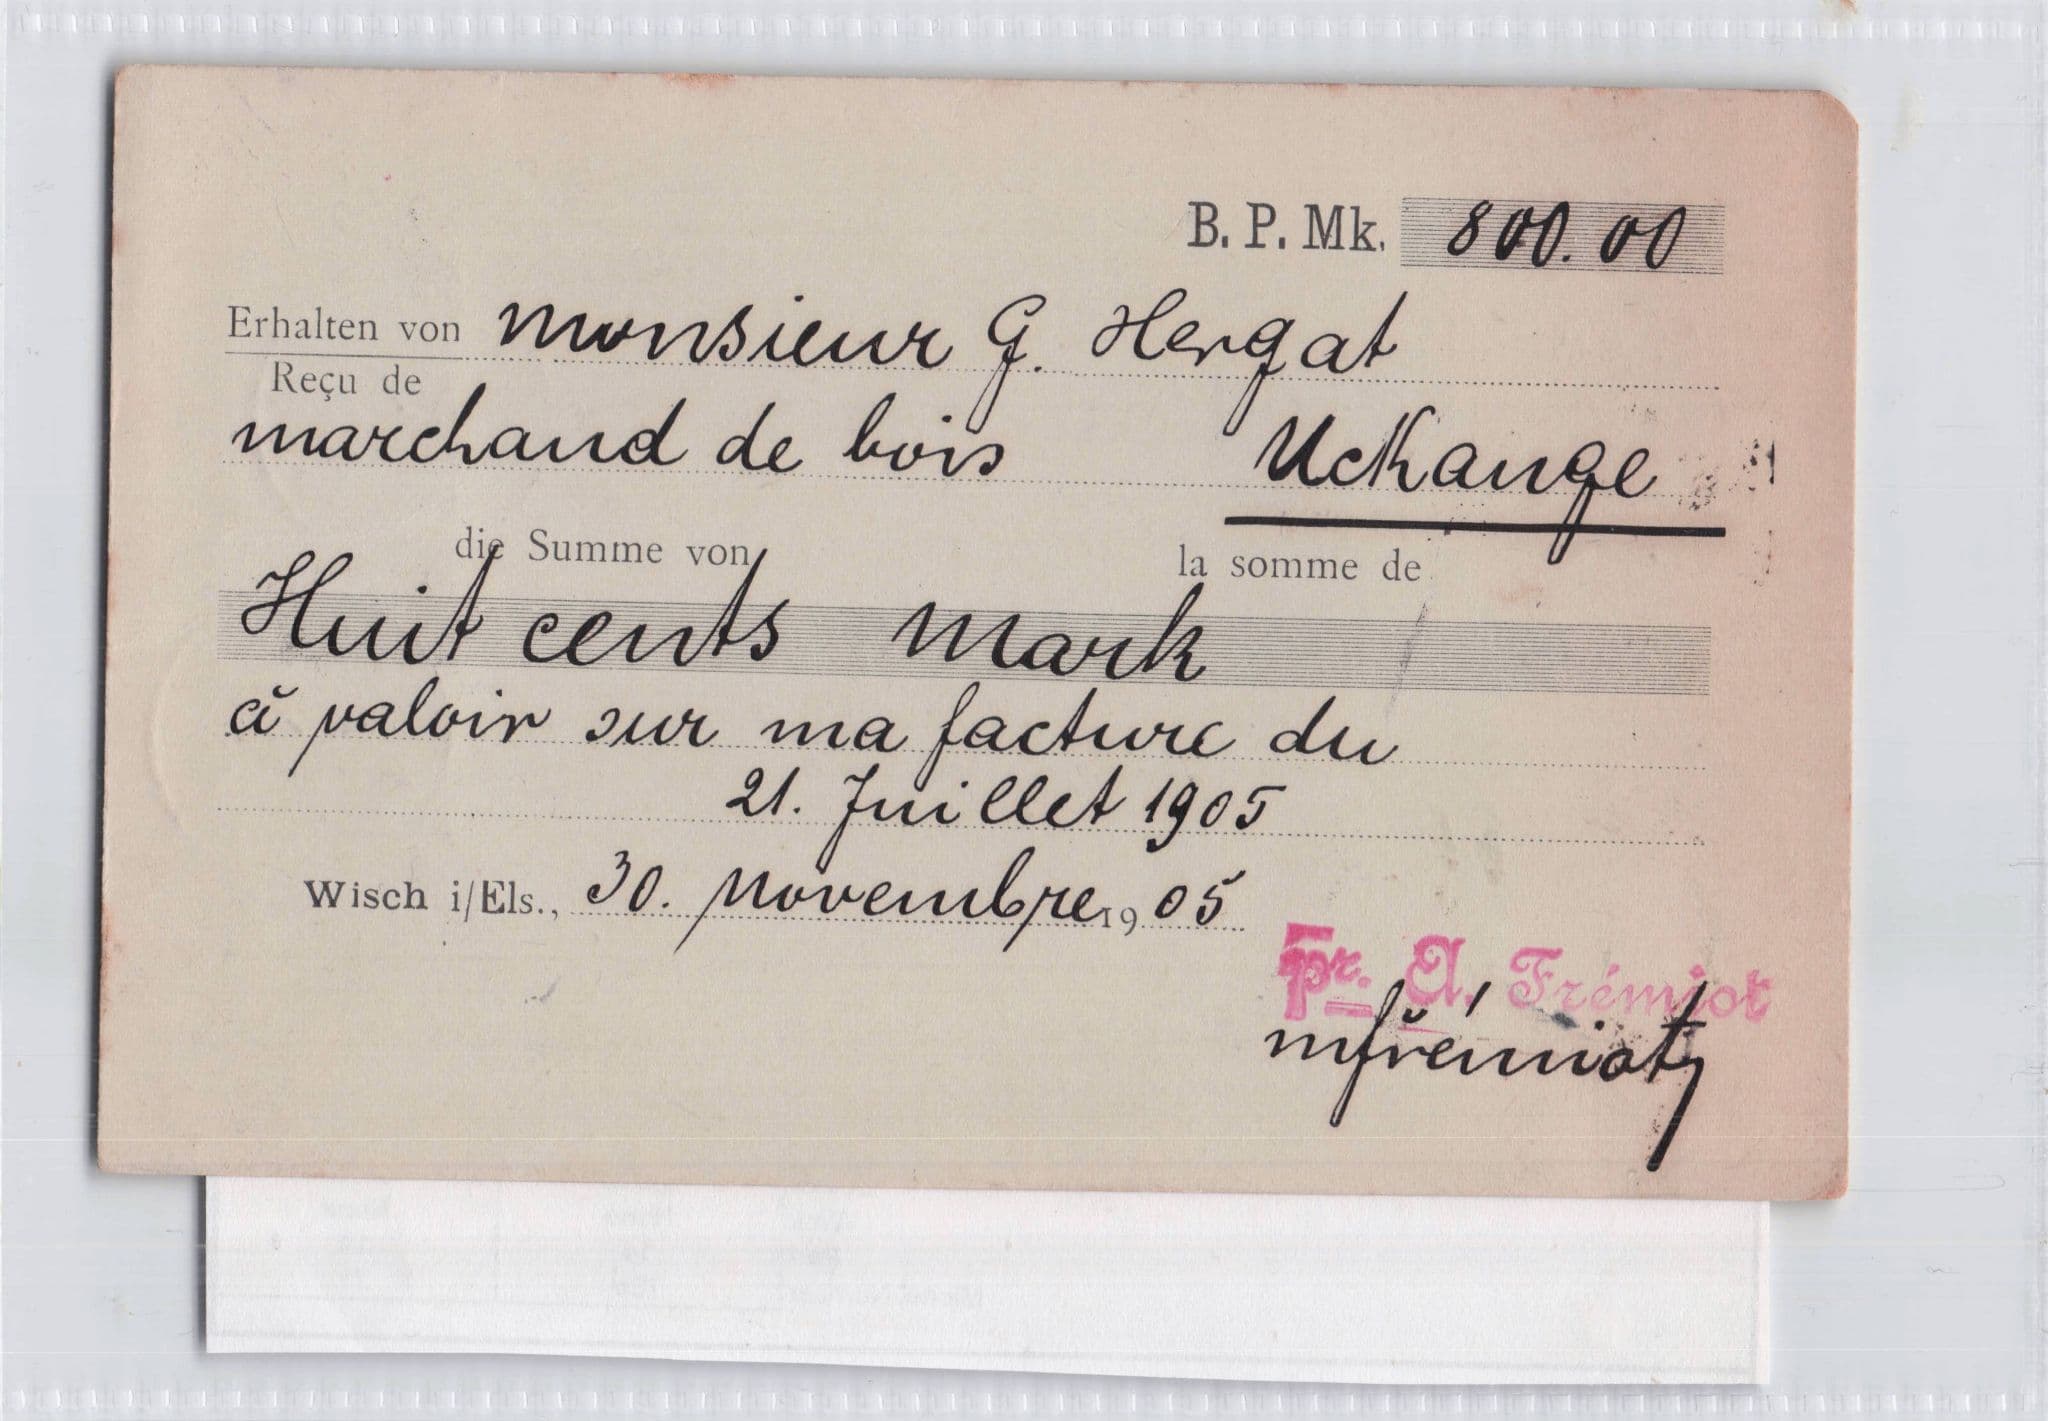 B. P. Mk. 800.00
Erhalten von Monsieur G. Hergat
Reçu de
marchand de bois Uckange
die Summe von la somme de
Huit cents Mark
à valoir sur ma facture du
21. Juillet 1905
Wisch i/Els., 30. Novembre 1905
Pr. A. Frémiot
mfrémiot